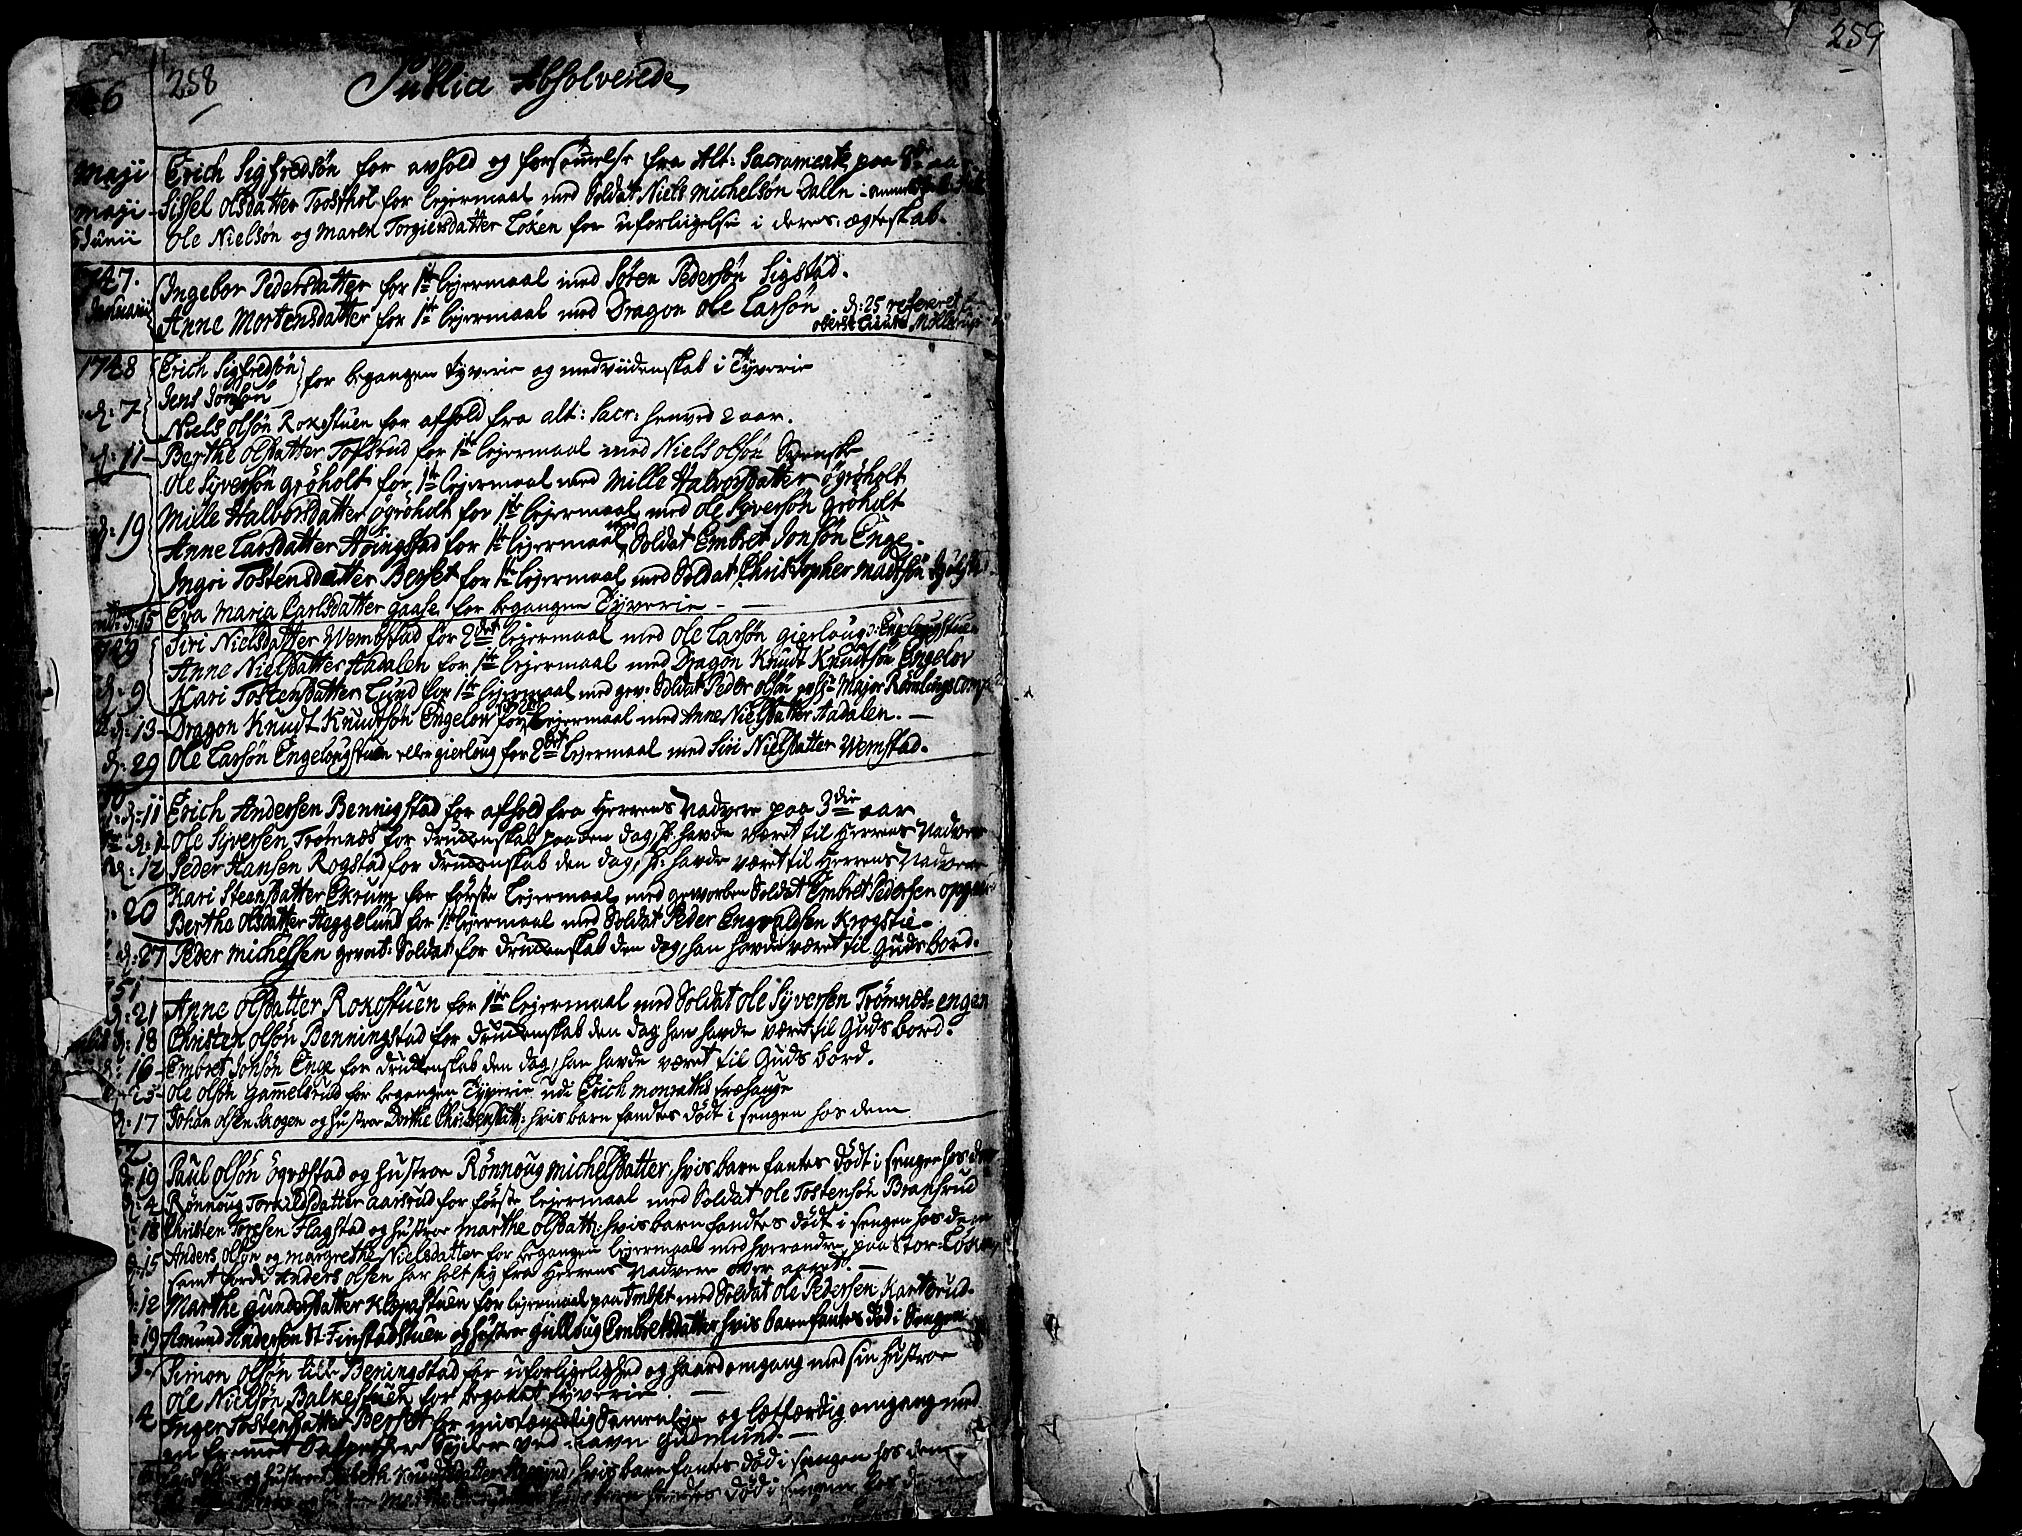 258
259
Publice Absolverede
Maji Erich Sigfredsøn for avhold og forsømmelse fra Alt: Sacramente paa
Maji Sissel Olsdatter Trosthol for Lejermaal med Soldat Niels Michelsøn Dalen
Junii Ole Nielsøn og Maren Torgiersdatter Løken for uforligelse i deres ægteskab.
1747.
Januarii Ingebor Pedersdatter for 1te Lejermaal med Søren Pedersøn Sigstad.
Anne Mortensdatter for 1te Lejermaal med Dragon Ole Larsøn d: 25 refereret
1748 Erich Sigfredsøn
Jens for begangen Tyverie og medviidenskab i Tyverie
d: 7 Niels Olsøn Rokostuen for afhold fra Alt: Sacr: henved 2 aar.
d: 11 Berthe Olsdatter Tofsrud for 1te Lejermaal med Niels Olsøn Svenske
Ole Syversøn Grøholt for 1te Lejermaal med Mille Halvorsdatter Øgrøholt
d: 19 Mille Halvorsdatter Øgrøholt for 1te Lejermaal med Ole Syversøn Grøholt
Anne Larsdatter Høingstad for 1te Lejermaal med Soldat Embret Jonsøn Enge.
Ingri Tostensdatter Berset for 1te Lejermaal med Soldat Christopher Madtsøn
d: 15 Eva Maria Carlsdatter Gaase for begangne Tyverie
Siri Nielsdatter Wemstad for 2det Lejermaal med Ole Larsøn Gierloug
Anne Nielsdatter Aadalen for 1te Lejermaal med Dragon Knudt Knudtsøn Engelov
d: 9 Kari Tostensdatter Lund for 1te Lejermaal med gev: Soldat Peder Olsøn Major Römlings Comp:
d: 13 Dragon Knudt Knudtsøn Engelov for Lejermaal med Anne Nielsdatter Aadalen.
d: 29 Ole Larsøn Engelougstuen eller Gierloug for 2det Lejermaal med Siri Nielsdatter Wemstad.
d: 11 Erich Andersen Bennigstad for afhold fra Herrens Nadvere paa 3die aar
Ole Syversen Trømnæs for druckenskab paa den dag, havde været til Herrens Nadvere
d: 12 Peder Hansen Rogstad for druckenskab den dag, havde været til Herrens Nadvere
Kari Steensdatter Ekrum for første Lejermaal med geworben Soldat Embret Pedersen
20 Berthe Olsdatter Heggelund for 1te Lejermaal med Soldat Peder Engvoldsen Krogstie
d: 27 Peder Michelsen gevorb: Soldat for druckenskab den dag, han havde været til Guds bord.
d: 21 Anne Olsdatter Rokostuen for 1te Lejermaal med Soldat Ole Syversen Trømnæs-engen
d: 18 Christen Olsøn Benningstad for druckenskab den dag han havde været til Guds bord.
16 Embret Jonsøn Enge for druckenskab den dag, han havde været til Guds bord.
25 Ole Olsøn Gamelsrud for begangen Tyverie udi Erich Monraths
d: 17 Johan Olsen Skogen og hustroe Dorthe Christensdatt: hvis barn fandtes dødt i sengen hos dem
19 Paul Olsøn Ögræstad og hustroe Rønnoug Michelsdatter, hvis barn fantes dødt i sengen hos dem
d: 4 Rønnoug Torkildsdatter Aarsrud for første Lejermaal med Soldat Ole Tostensøn Bransrud
18 Christen Flagstad og hustroe Marthe Olsdatt: hvis barn fandtes dødt i sengen hos dem
d: 15 Anders Olsøn og Margrethe Nielsdatter for begangen Lejermaal med hverandre, paa Stor-Löken
samt fordi Anders Olsen har holt sig fra Herrens Nadvere over aaret.
12 Marthe Gundersdatter Kloppstuen for Lejermaal paa Smidt med Soldat Ole Pedersen Karterud.
19 Amund Andersen St: Finstadstuen og hustroe Gulloug Embretsdatter hvis barn fantes død i Sengen
Simon Olsøn lille Beningstad for uforligelighed og haard omgang med sin hustroe
Ole Nielsøn Balkestuen for begaaet tyverie
Inger Tostensdatter Berset for og letfærdig omgang med
en fremmet Salpether Syder ved navn Gudmund.
og hustroe Lisbeth Knudsdatter hvis barn fantes død i sengen hos dem